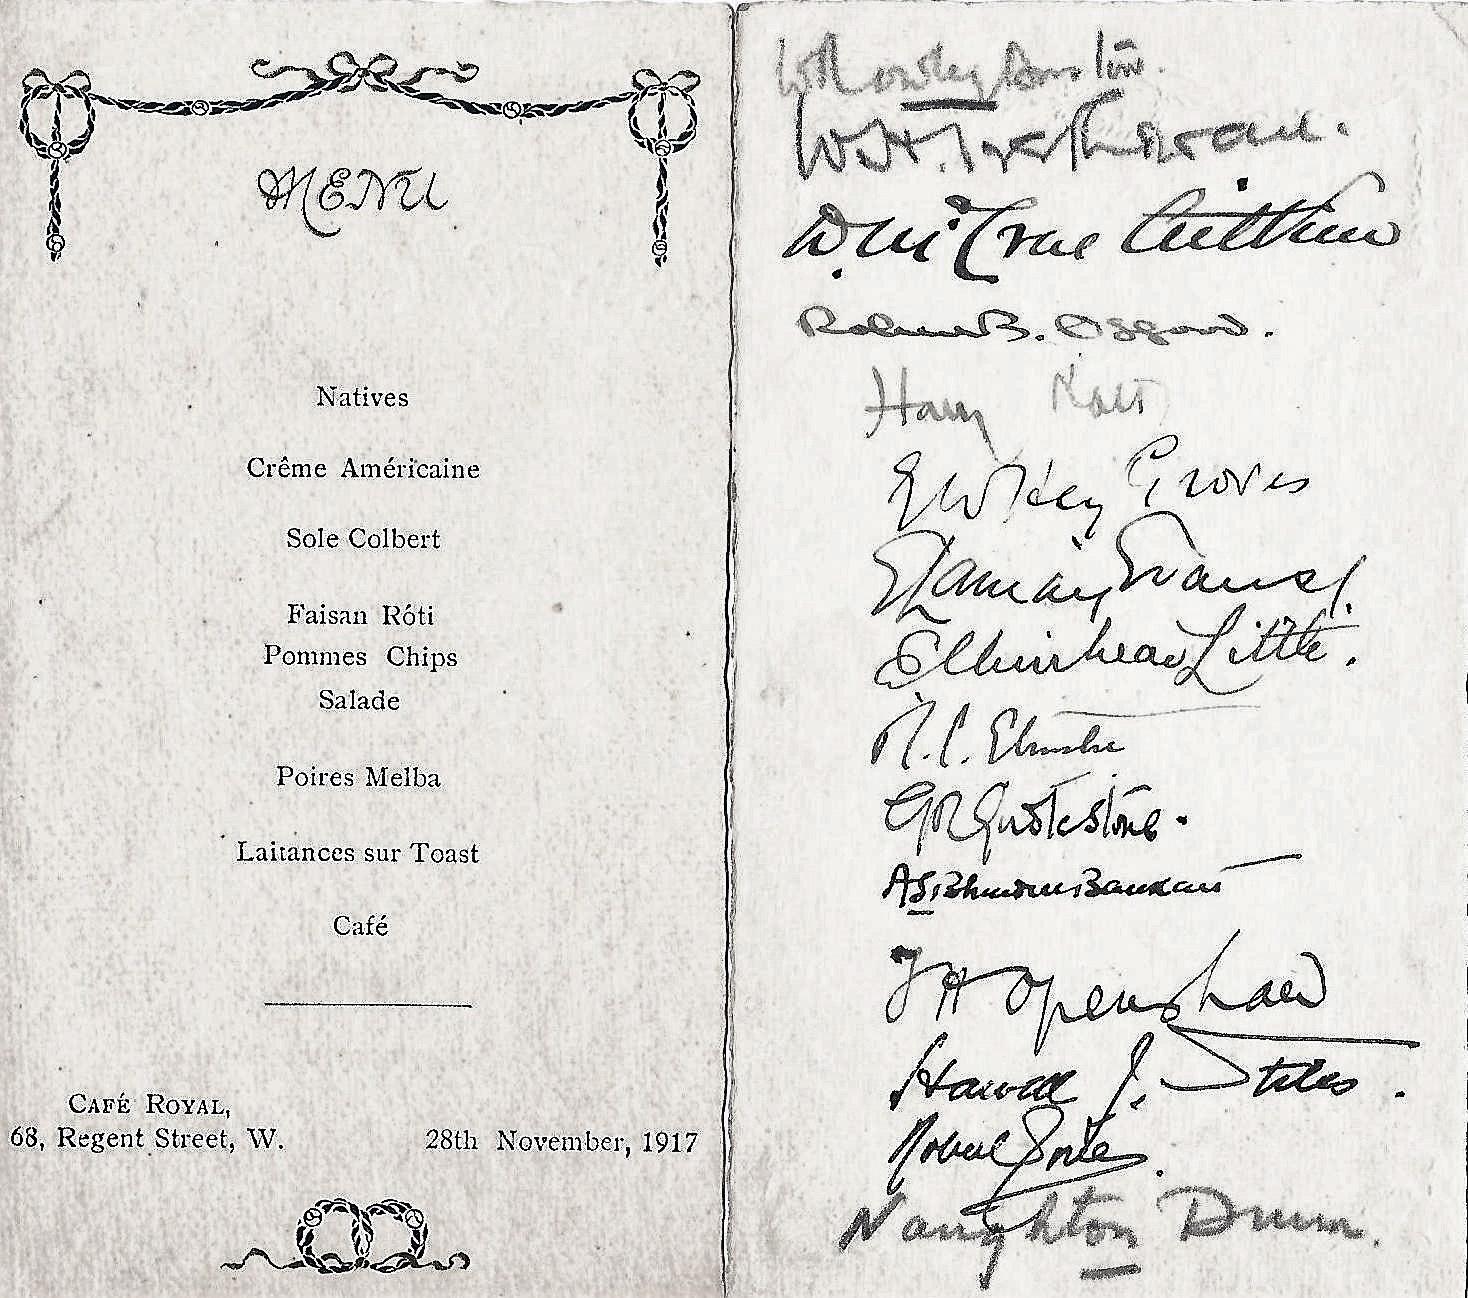 MENU
Natives
Crême Américaine
Sole Colbert
Faisan Rôti
Pommes Chips
Salade
Poires Melba
Laitances sur Toast
Café
CAFÉ ROYAL,
68, Regent Street, W.
28th November, 1917
W Rowley Bristow.
W. H. Trethowan.
D. McCrae Aitken
Robert B. Osgood.
Harry Platt
E W Hey Groves
E Laming Evans
E Muirhead Little.
R. C. Elmslie
G R Girdlestone.
A S Blundell Bankart
T H Openshaw
Harold J. Stiles.
Robert Jones.
Naughton Dunn.